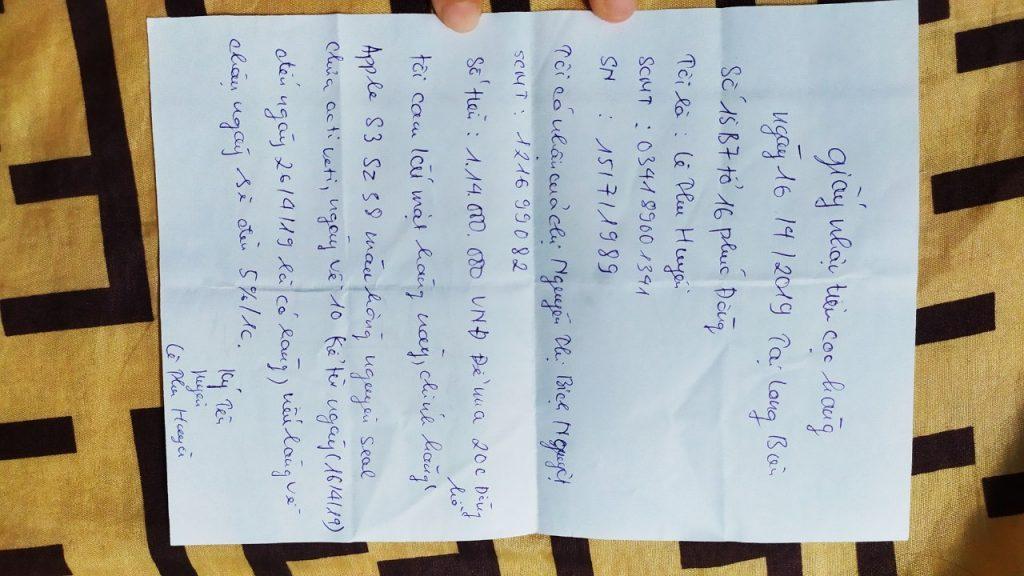 giấy nhận tiền cọc hàng
ngày 16 /4/2019 Tại Long Biên
Số 15B7 tổ 16 phúc Đồng
Tôi là : Lê Thu Huyền
SCMT : 034189001391
SN : 15/7/1989
Tôi có nhận của chị Nguyễn Thị Bích Nguyệt
SCMT : 121699082
Số tiền : 114.000.000 VNĐ Để mua 20c Đồng hồ
Tôi cam kết mặt hàng này, chính hãng
Apple S3 Sz 38 màu hồng nguyên seal
chưa activeti, ngày về 10 kể từ ngày (16/4/19)
đến ngày 26/4/19 là có hàng, nếu hàng về
chậm ngày sẽ đền 5%/1c.
Ký Tên
Huyền
Lê Thu Huyền